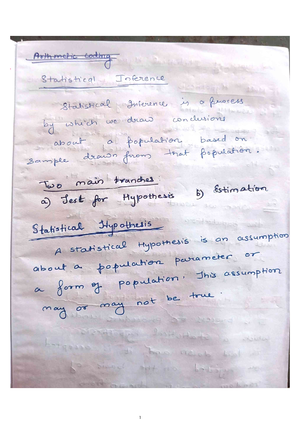 Arithmetic coding
Statistical Inference
Statistical Inference is a process
by which we draw conclusions
about a population based on
sample drawn from that population.
Two main branches
a) Test for Hypothesis b) Estimation
Statistical Hypothesis
A statistical Hypothesis is an assumption
about a population parameter or
a form of population. This assumption
may or may not be true.
1